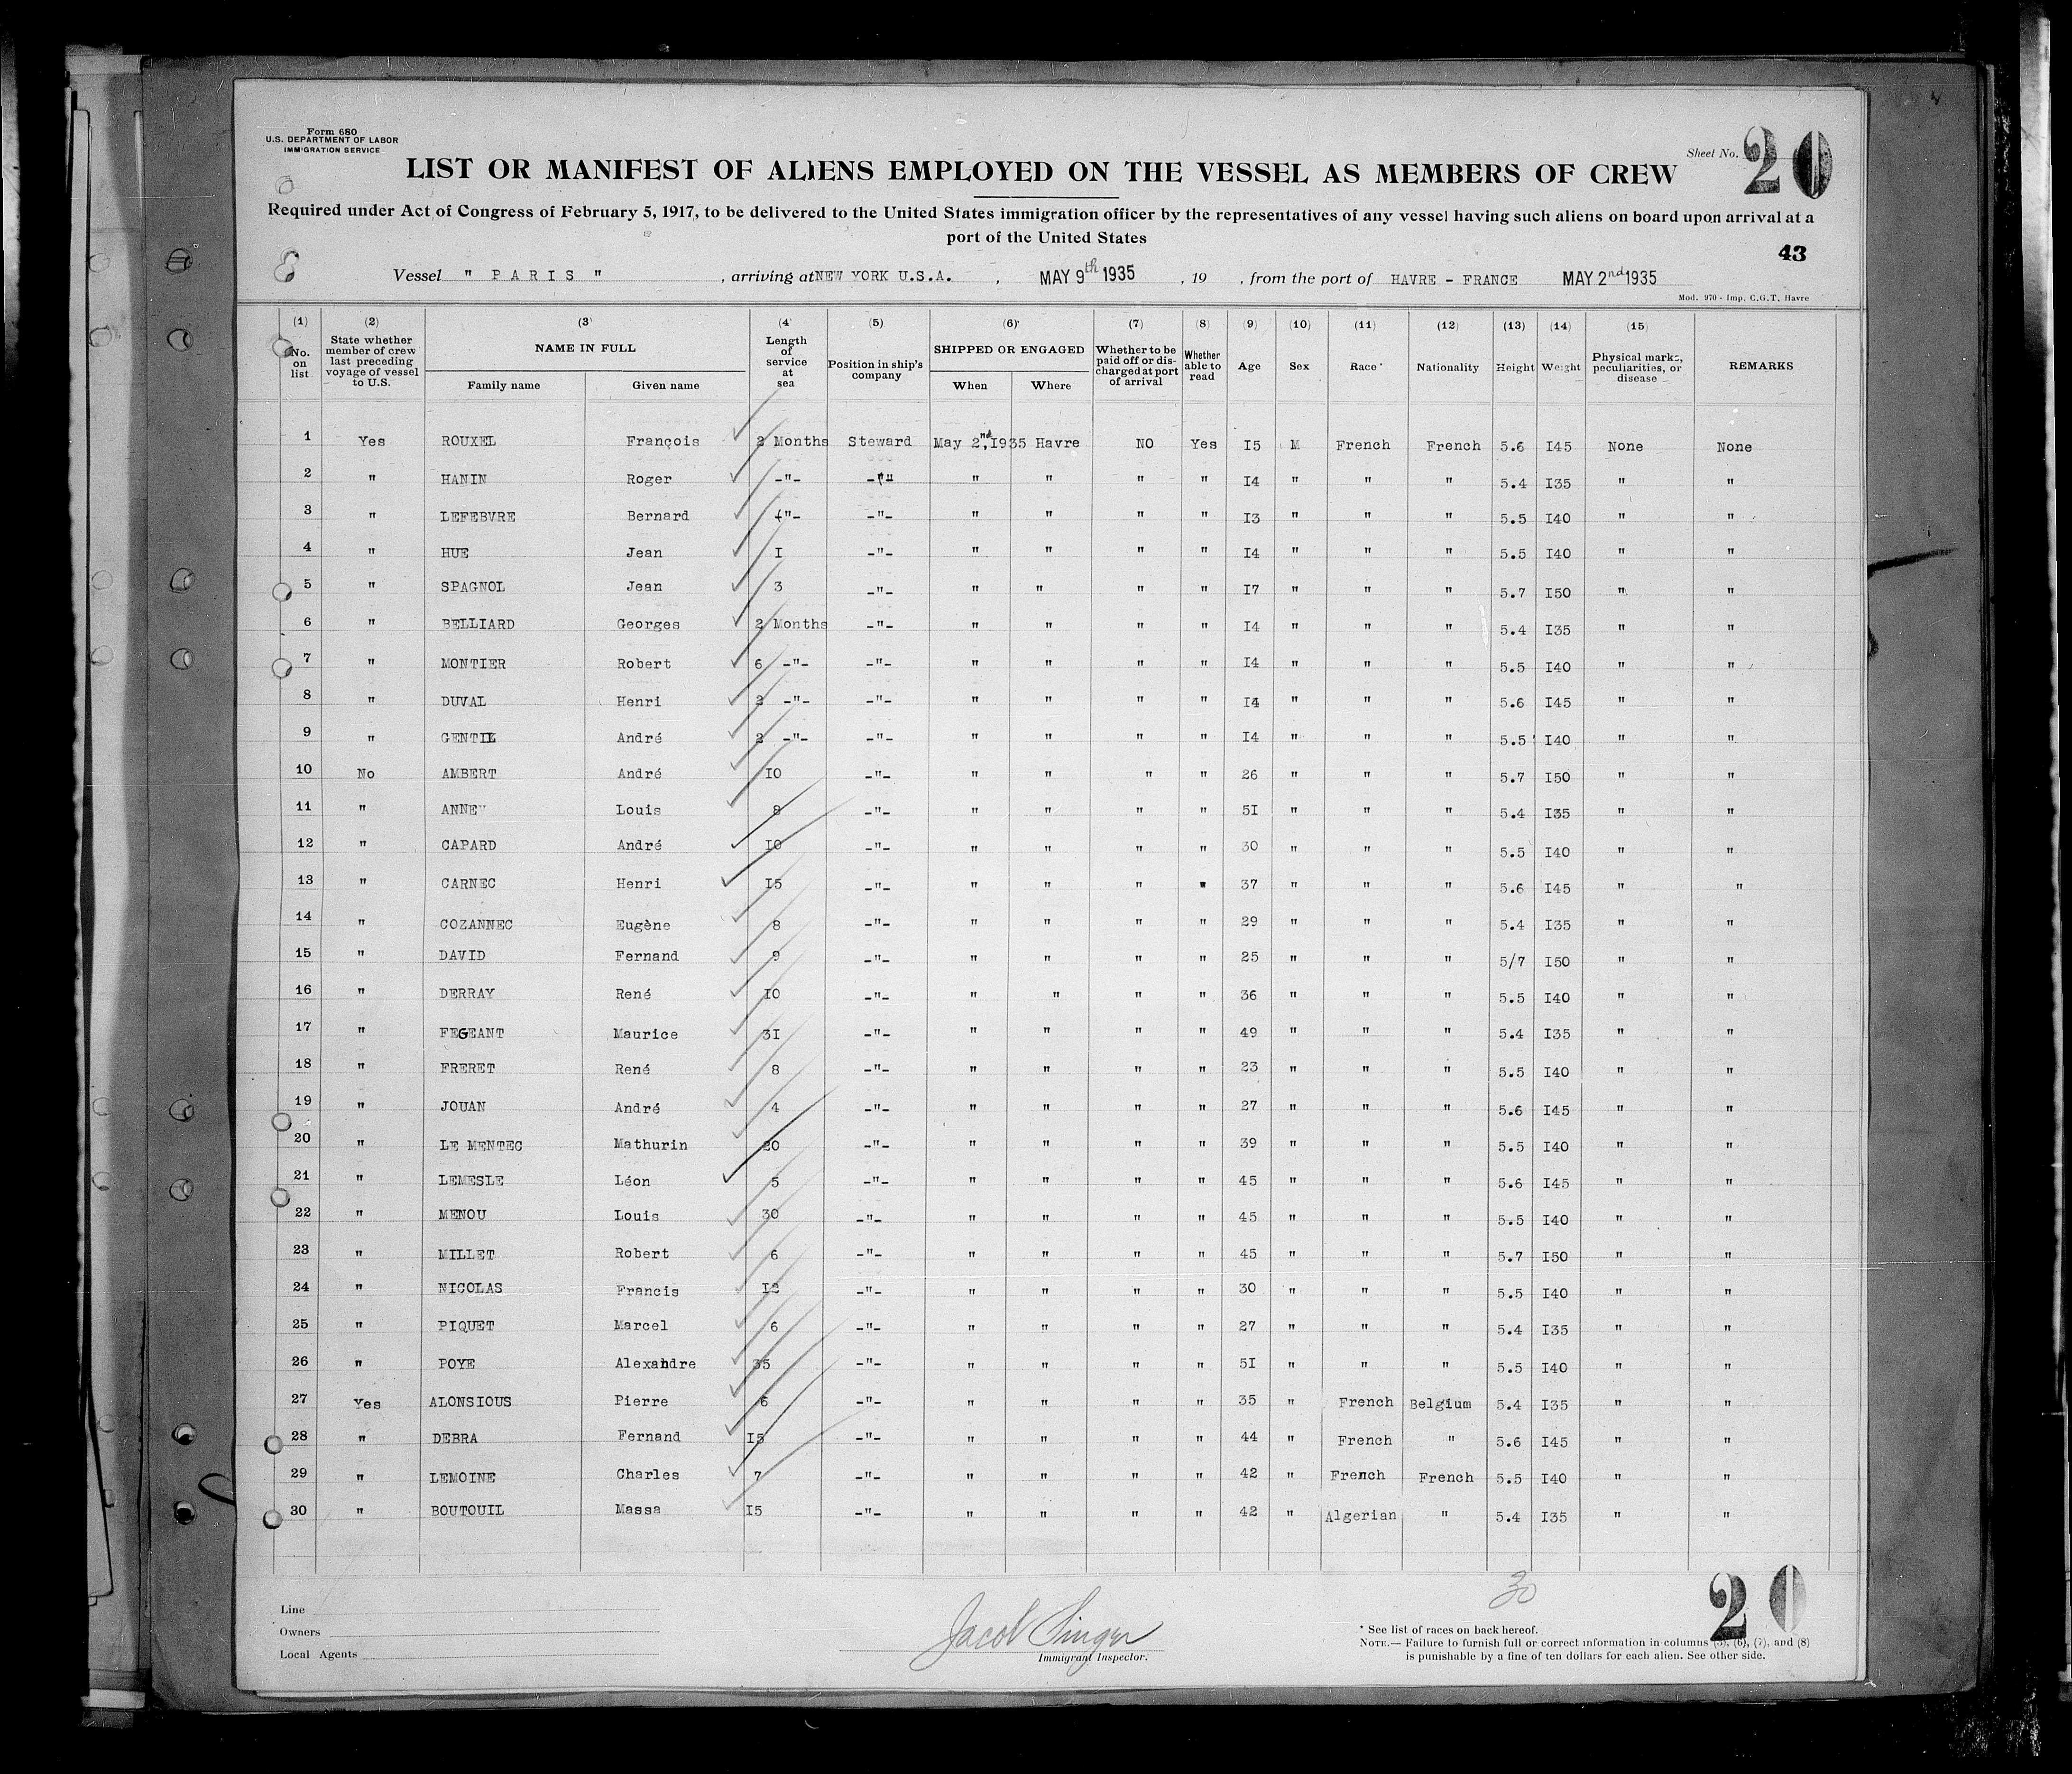 Form 680
U.S. DEPARTMENT OF LABOR
IMMIGRATION SERVICE
Sheet No. 20
LIST OR MANIFEST OF ALIENS EMPLOYED ON THE VESSEL AS MEMBERS OF CREW
Required under Act of Congress of February 5, 1917, to be delivered to the United States immigration officer by the representatives of any vessel having such aliens on board upon arrival at a
port of the United States
43
Vessel " PARIS " , arriving at NEW YORK U.S.A. , MAY 9th 1935 , 19 , from the port of HAVRE - FRANCE MAY 2nd 1935
Mod. 970 - Imp. C.G.T. Havre
(1) (2) (3) (4) (5) (6) (7) (8) (9) (10) (11) (12) (13) (14) (15)
No. on list State whether member of crew last preceding voyage of vessel to U.S. NAME IN FULL Family name Given name Length of service at sea Position in ship's company SHIPPED OR ENGAGED When Where Whether to be paid off or discharged at port of arrival Whether able to read Age Sex Race * Nationality Height Weight Physical marks, peculiarities, or disease REMARKS
1 Yes ROUXEL François 2 Months Steward May 2nd,1935 Havre NO Yes I5 M French French 5.6 I45 None None
2 " HANIN Roger -"- -"- " " " " I4 " " " 5.4 I35 " "
3 " LEFEBVRE Bernard -"- -"- " " " " I3 " " " 5.5 I40 " "
4 " HUE Jean I -"- " " " " I4 " " " 5.5 I40 " "
5 " SPAGNOL Jean 3 -"- " " " " I7 " " " 5.7 I50 " "
6 " BELLIARD Georges 2 Months -"- " " " " I4 " " " 5.4 I35 " "
7 " MONTIER Robert 6 -"- -"- " " " " I4 " " " 5.5 I40 " "
8 " DUVAL Henri 2 -"- -"- " " " " I4 " " " 5.6 I45 " "
9 " GENTIL André 2 -"- -"- " " " " I4 " " " 5.5 I40 " "
10 No AMBERT André IO -"- " " " " 26 " " " 5.7 I50 " "
11 " ANNE Louis 8 -"- " " " " 5I " " " 5.4 I35 " "
12 " CAPARD André IO -"- " " " " 30 " " " 5.5 I40 " "
13 " CARNEC Henri I5 -"- " " " " 37 " " " 5.6 I45 " "
14 " COZANNEC Eugène 8 -"- " " " " 29 " " " 5.4 I35 " "
15 " DAVID Fernand 9 -"- " " " " 25 " " " 5/7 I50 " "
16 " DERRAY René IO -"- " " " " 36 " " " 5.5 I40 " "
17 " FEGEANT Maurice 3I -"- " " " " 49 " " " 5.4 I35 " "
18 " FRERET René 8 -"- " " " " 23 " " " 5.5 I40 " "
19 " JOUAN André 4 -"- " " " " 27 " " " 5.6 I45 " "
20 " LE MENTEC Mathurin 20 -"- " " " " 39 " " " 5.5 I40 " "
21 " LEMESLE Léon 5 -"- " " " " 45 " " " 5.6 I45 " "
22 " MENOU Louis 30 -"- " " " " 45 " " " 5.5 I40 " "
23 " MILLET Robert 6 -"- " " " " 45 " " " 5.7 I50 " "
24 " NICOLAS Francis I2 -"- " " " " 30 " " " 5.5 I40 " "
25 " PIQUET Marcel 6 -"- " " " " 27 " " " 5.4 I35 " "
26 " POYE Alexandre 35 -"- " " " " 5I " " " 5.5 I40 " "
27 Yes ALONSIOUS Pierre 6 -"- " " " " 35 " French Belgium 5.4 I35 " "
28 " DEBRA Fernand I5 -"- " " " " 44 " French " 5.6 I45 " "
29 " LEMOINE Charles 7 -"- " " " " 42 " French French 5.5 I40 " "
30 " BOUTOUIL Massa I5 -"- " " " " 42 " Algerian " 5.4 I35 " "
30
20
Line
Owners
Local Agents
Jacob Singer
Immigrant Inspector.
* See list of races on back hereof.
NOTE.— Failure to furnish full or correct information in columns (5), (6), (7), and (8)
is punishable by a fine of ten dollars for each alien. See other side.